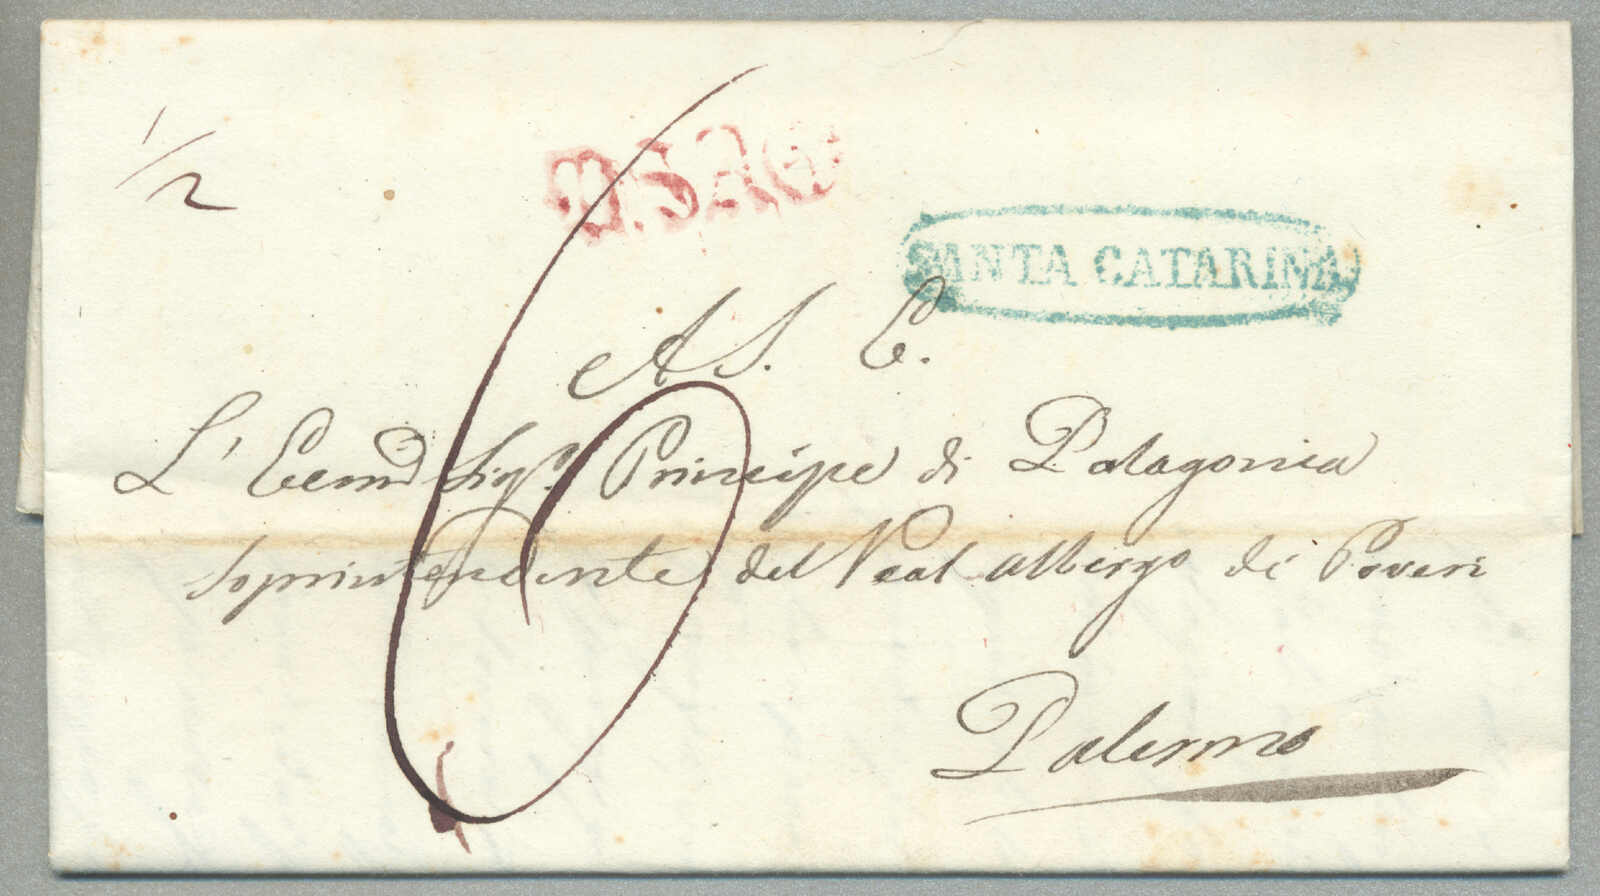 1/2
SANTA CATARINA
6
A S. E.
L' Sig.r Principe di Palagonia
Soprintendente del Real albergo di Poveri
Palermo